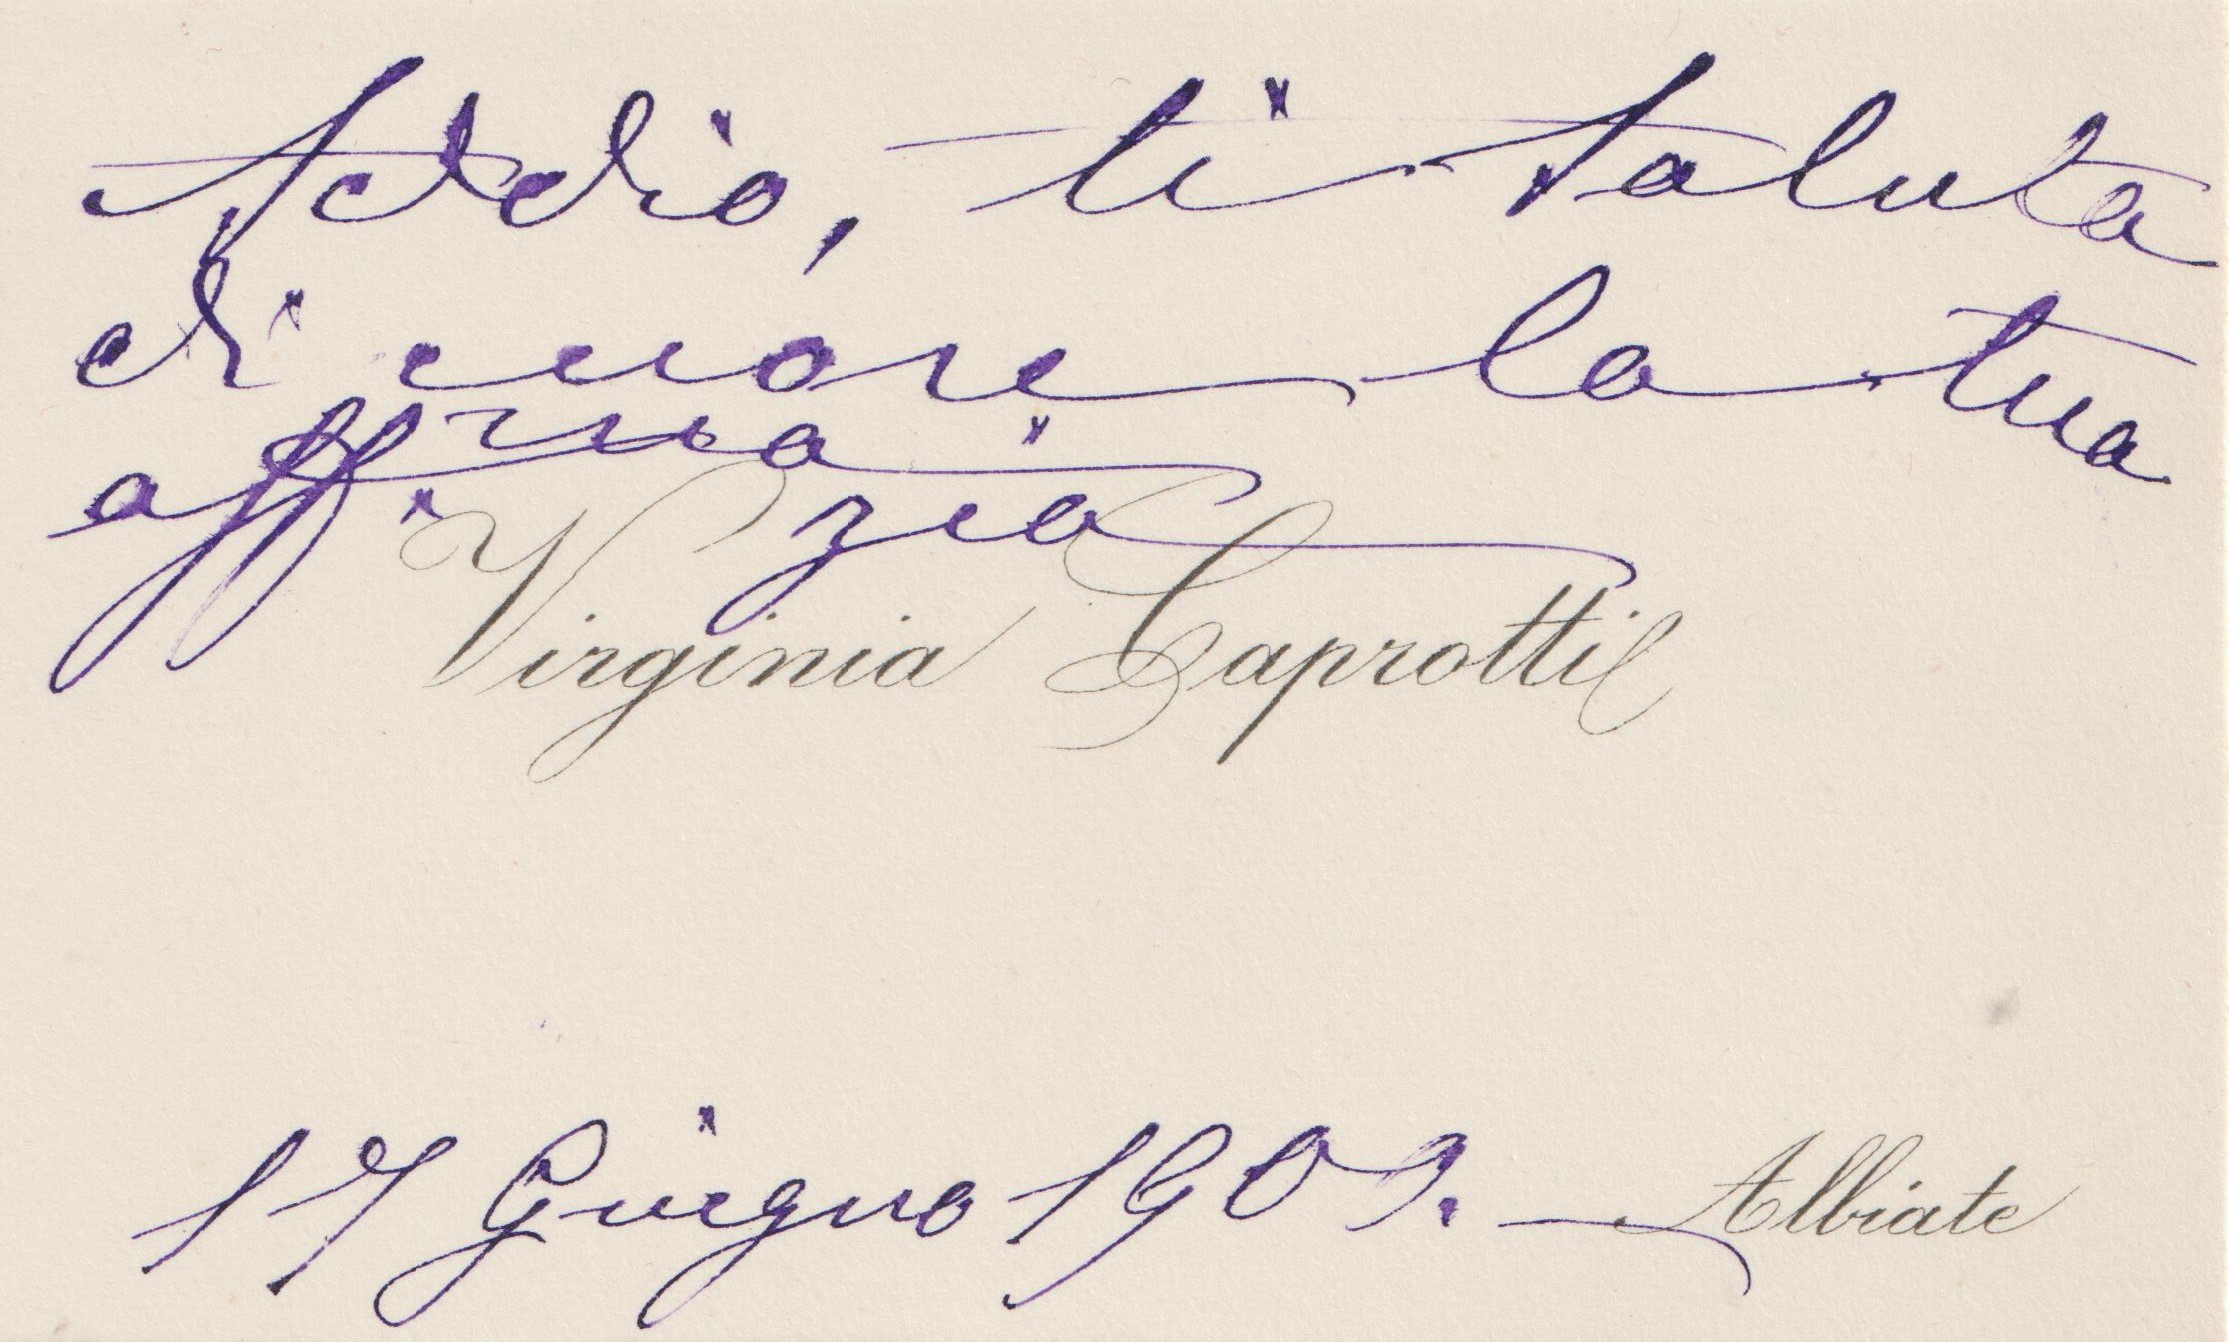 Addio, ti saluta
di cuore la tua
aff.ma zia
Virginia Caprotti
17 Giugno 1909. Albiate